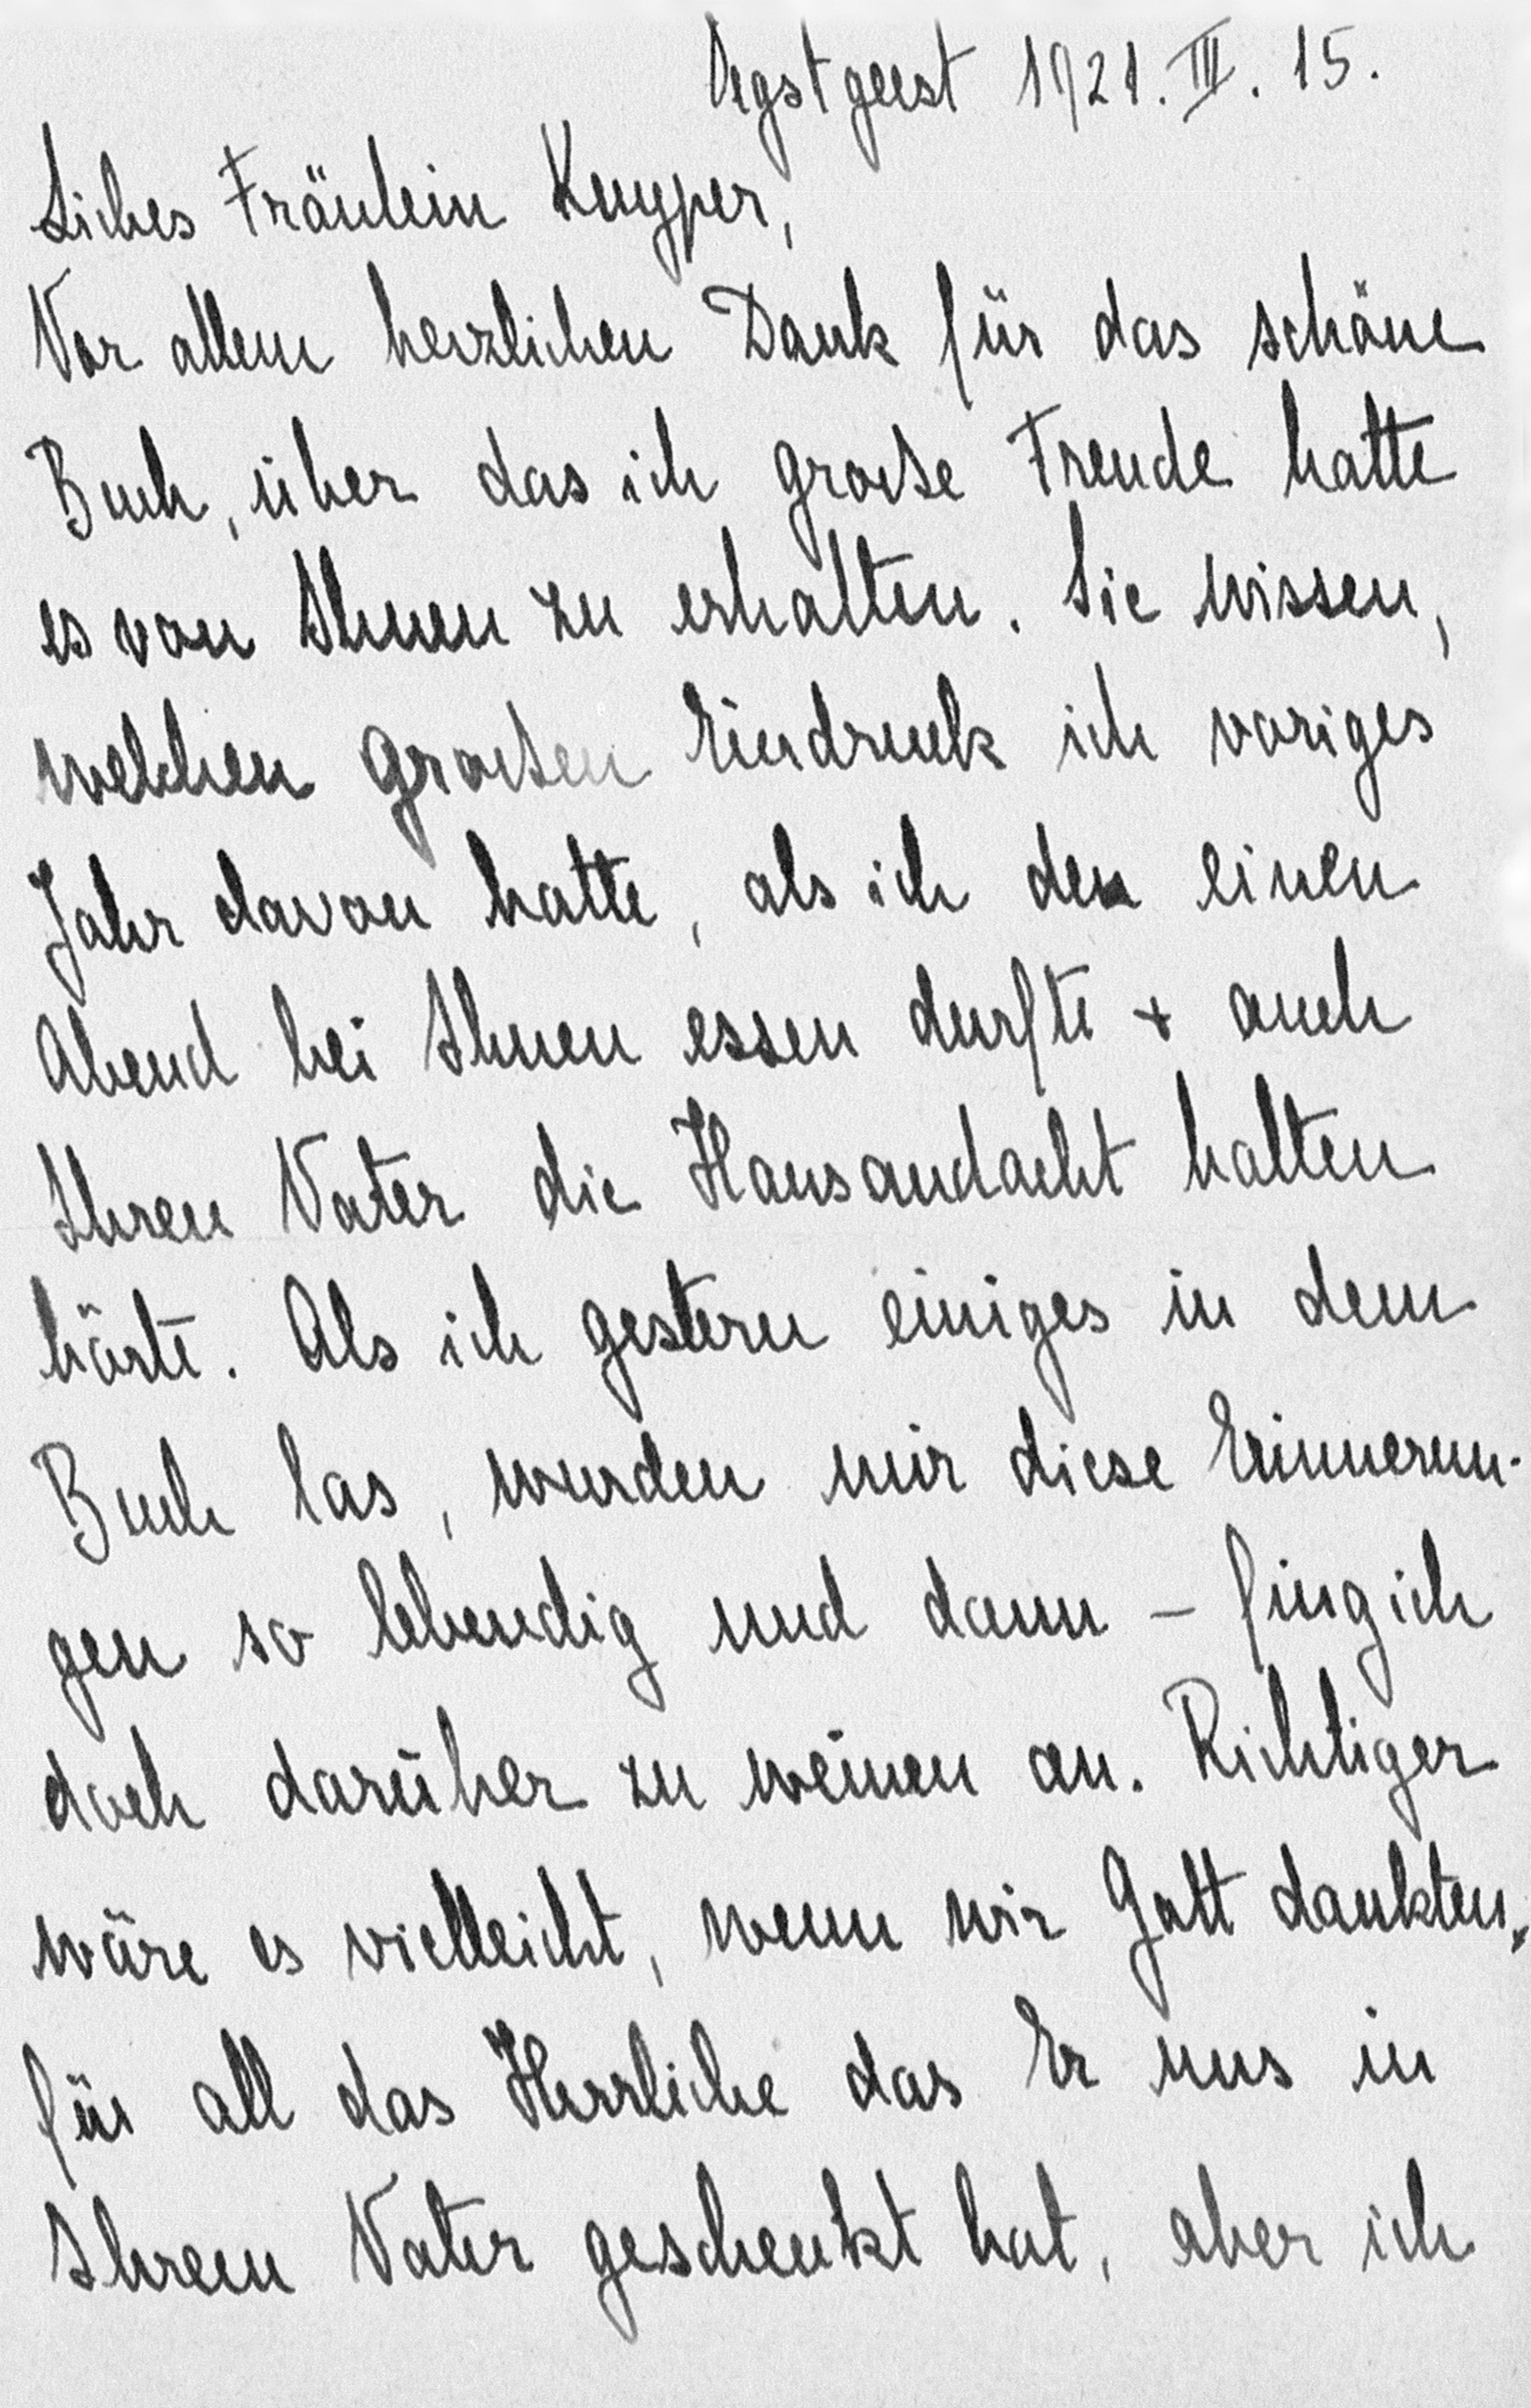 Oegstgeest 1921. III. 15.
Liebes Fräulein Kuyper,
Vor allem herzlichen Dank für das schöne
Buch, über das ich große Freude hatte
es von Ihnen zu erhalten. Sie wissen,
welchen großen Eindruck ich voriges
Jahr davon hatte, als ich den einen
Abend bei Ihnen essen durfte + auch
Ihren Vater die Hausandacht halten
hörte. Als ich gestern einiges in dem
Buch las, wurden mir diese Erinnerun-
gen so lebendig und dann – fing ich
doch darüber zu weinen an. Richtiger
wäre es vielleicht, wenn wir Gott dankten,
für all das Herrliche das Er uns in
Ihrem Vater geschenkt hat, aber ich